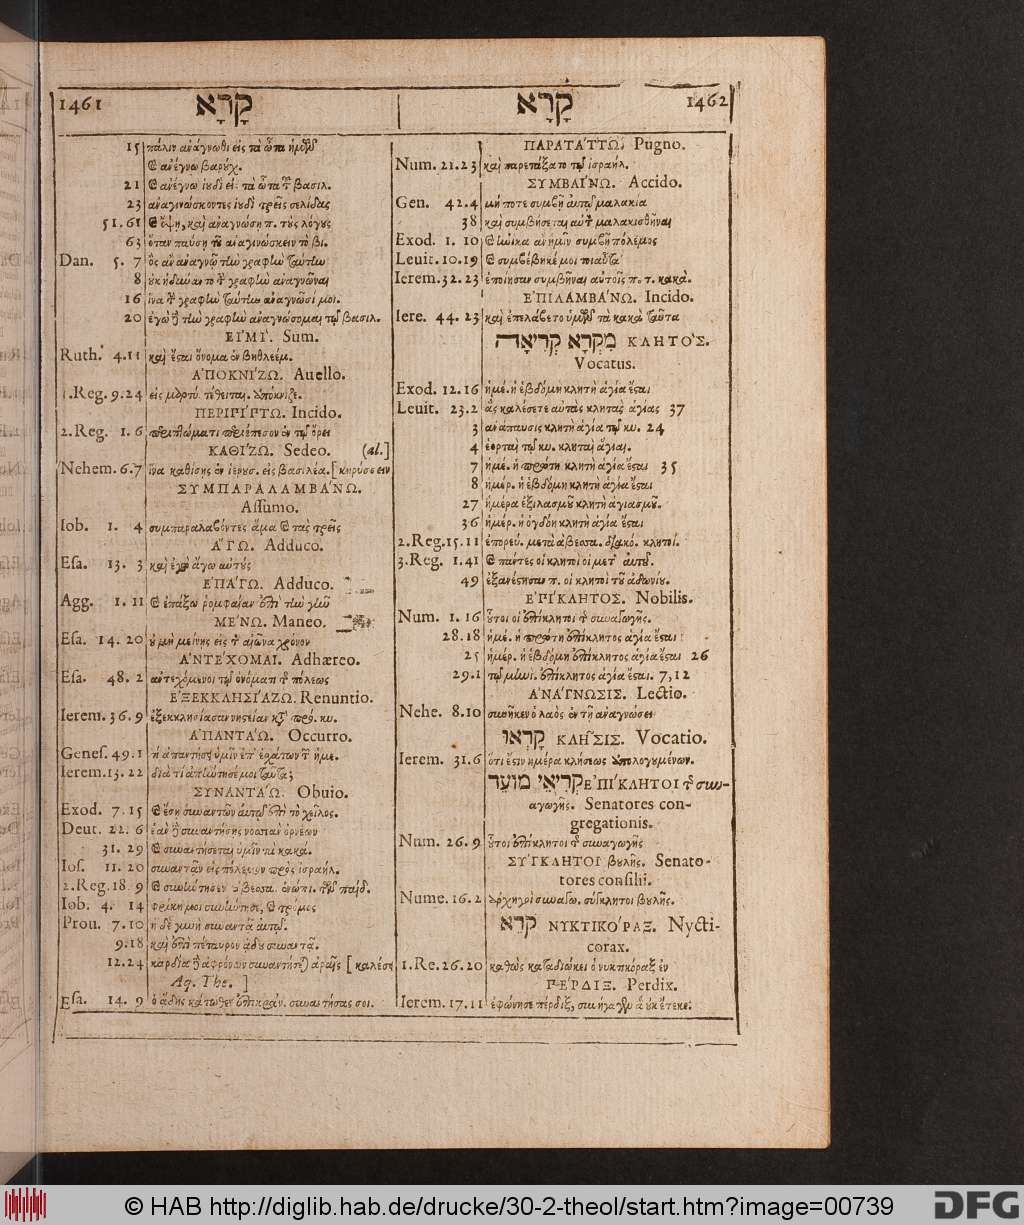 1461 קָרָא
15 πάλιν ἀνάγνωθι εἰς τὰ ὦτα ἡμῶν
ἀνέγνω βαρύχ.
21 ἀνέγνω ἰουδὶ εἰς τὰ ὦτα τοῦ βασιλ.
23 ἀναγινώσκοντες ἰουδὶ τρεῖς σελίδας
51.61 ὄψῃ, καὶ ἀναγνώσῃ π. τοὺς λόγους
63 ὅταν παύσῃ τοῦ ἀναγινώσκειν τὸ βι.
Dan. 5. 7 ὃς ἂν ἀναγνῷ τὴν γραφὴν ταύτην
8 οὐκ ἠδύναντο τὴν γραφὴν ἀναγνῶναι
16 ἵνα τὴν γραφὴν ταύτην ἀναγνῶσί μοι.
20 ἐγὼ τὴν γραφὴν ἀναγνώσομαι τῷ βασιλ.
ΕἸΜΊ. Sum.
Ruth. 4.11 καὶ ἔσται ὄνομα ἐν βηθλεέμ.
ἈΠΟΚΝΊΖΩ. Auello.
1.Reg.9.24 εἰς μαρτύ. τέθειται, ἀπόκνιζε.
ΠΕΡΙΠΊΠΤΩ. Incido.
2.Reg. 1. 6 περιπτώματι περιέπεσον ἐν τῷ ὄρει
ΚΑΘΊΖΩ. Sedeo. (al.]
Nehem. 6.7 ἵνα καθίσῃς ἐν ἱερουσ. εἰς βασιλέα. [κηρύσσειν
ΣΥΜΠΑΡΑΛΑΜΒΆΝΩ.
Assumo.
Iob. 1. 4 συμπαραλαβόντες ἅμα τὰς τρεῖς
ἌΓΩ. Adduco.
Esa. 13. 3 καὶ ἐγὼ ἄγω αὐτούς
ἘΠΆΓΩ. Adduco.
Agg. 1. 11 ἐπάξω ῥομφαίαν ἐπὶ τὴν γῆν
ΜΈΝΩ. Maneo.
Esa. 14. 20 οὐ μὴ μείνῃς εἰς τὸν αἰῶνα χρόνον
ἈΝΤΈΧΟΜΑΙ. Adhæreo.
Esa. 48. 2 ἀντεχόμενοι τῷ ὀνόματι τῆς πόλεως
ἘΞΕΚΚΛΗΣΙΆΖΩ. Renuntio.
Ierem. 36. 9 ἐξεκκλησίασαν νηστείαν κτ̀ πρό. κυ.
ἈΠΑΝΤΆΩ. Occurro.
Genes. 49.1 τί ἀπαντήσει ὑμῖν ἐπ' ἐσχάτων τῶν ἡμε.
Ierem. 13. 22 διὰ τί ἀπήντησέ μοι ταῦτα;
ΣΥΝΑΝΤΆΩ. Obuio.
Exod. 7. 15 ἔσῃ συναντῶν αὐτῷ ἐπὶ τὸ χεῖλος.
Deut. 22. 6 ἐὰν συναντήσῃς νοσσιᾷ ὀρνέων
31. 29 συναντήσεται ὑμῖν τὰ κακά.
Ios. 11. 20 συναντᾶν εἰς πόλεμον πρὸς ἰσραήλ.
2.Reg. 18. 9 συνήντησεν ἀβεσσα. ἐνώπι. τῶν παίδ.
Iob. 4. 14 φρίκη μοι συνήντησε, τρόμος
Prou. 7. 10 ἡ δὲ γυνὴ συναντᾷ αὐτῷ.
9.18 καὶ ἐπὶ πέταυρον ᾅδου συναντᾷ.
12.24 καρδία ἀφρόνων συναντήσεται ἀραῖς [καλέσει
Aq. The. ]
Esa. 14. 9 ὁ ᾅδης κάτωθεν ἐπικράν. συναντήσας σοι.
קָרָא 1462
ΠΑΡΑΤΆΤΤΩ. Pugno.
Num. 21.23 καὶ παρετάξατο τῷ ἰσραήλ.
ΣΥΜΒΑΊΝΩ. Accido.
Gen. 42.4 μή ποτε συμβῇ αὐτῷ μαλακία
38 καὶ συμβήσεται αὐτὸν μαλακισθῆναι
Exod. 1. 10 ἡνίκα ἂν ἡμῖν συμβῇ πόλεμος
Leuit. 10.19 συμβέβηκέ μοι τοιαῦτα
Ierem. 32. 23 ἐποίησαν συμβῆναι αὐτοῖς π. τ. κακά.
ἘΠΙΛΑΜΒΆΝΩ. Incido.
Iere. 44. 23 καὶ ἐπελάβετο ὑμῶν τὰ κακὰ ταῦτα
מִקְרָא קְרִיאָה ΚΛΗΤΌΣ.
Vocatus.
Exod. 12.16 ἡμέ. ἡ ἑβδόμη κλητὴ ἁγία ἔσται
Leuit. 23.2 ἃς καλέσετε αὐτὰς κλητὰς ἁγίας 37
3 ἀνάπαυσις κλητὴ ἁγία τῷ κυ. 24
4 ἑορταὶ τῷ κυ. κληταὶ ἅγιαι.
7 ἡμέ. ἡ πρώτη κλητὴ ἁγία ἔσται 35
8 ἡμέρ. ἡ ἑβδόμη κλητὴ ἁγία ἔσται
27 ἡμέρα ἐξιλασμοῦ κλητὴ ἁγιασμοῦ.
36 ἡμέρ. ἡ ὀγδόη κλητὴ ἁγία ἔσται
2.Reg. 15.11 ἐπορεύ. μετὰ ἀβεσσα. διακό. κλητοί.
3.Reg. 1.41 πάντες οἱ κλητοὶ οἱ μετ' αὐτοῦ.
49 ἐξανέστησαν π. οἱ κλητοὶ τοῦ ἀδωνίου.
ἘΠΊΚΛΗΤΟΣ. Nobilis.
Num. 1. 16 οὗτοι οἱ ἐπίκλητοι τῆς συναγωγῆς.
28.18 ἡμέ. ἡ πρώτη ἐπίκλητος ἁγία ἔσται
25 ἡμέρ. ἡ ἑβδόμη ἐπίκλητος ἁγία ἔσται 26
29.1 τῷ μηνὶ. ἐπίκλητος ἁγία ἔσται. 7, 12
ἈΝΆΓΝΩΣΙΣ. Lectio.
Nehe. 8.10 συνῆκεν ὁ λαὸς ἐν τῇ ἀναγνώσει
קָרְאוּ ΚΛΗ͂ΣΙΣ. Vocatio.
Ierem. 31.6 ὅτι ἔστιν ἡμέρα κλήσεως ἀπολογουμένων.
קְרִיאֵי מוֹעֵד ἘΠΊΚΛΗΤΟΙ τῆς συναγωγῆς.
Senatores congregationis.
Num. 26.9 οὗτοι ἐπίκλητοι τῆς συναγωγῆς
ΣΎΓΚΛΗΤΟΙ βουλῆς. Senatores
consilii.
Nume. 16.2 ἀρχηγοὶ συναγω. σύγκλητοι βουλῆς.
קֹרֵא ΝΥΚΤΙΚΌΡΑΞ. Nycticorax.
1.Re. 26.20 καθὼς καταδιώκει ὁ νυκτικόραξ ἐν
ΠΈΡΔΙΞ. Perdix.
Ierem. 17.11 ἐφώνησε πέρδιξ, συνήγαγεν ἃ οὐκ ἔτεκε.
© HAB http://diglib.hab.de/drucke/30-2-theol/start.htm?image=00739
DFG